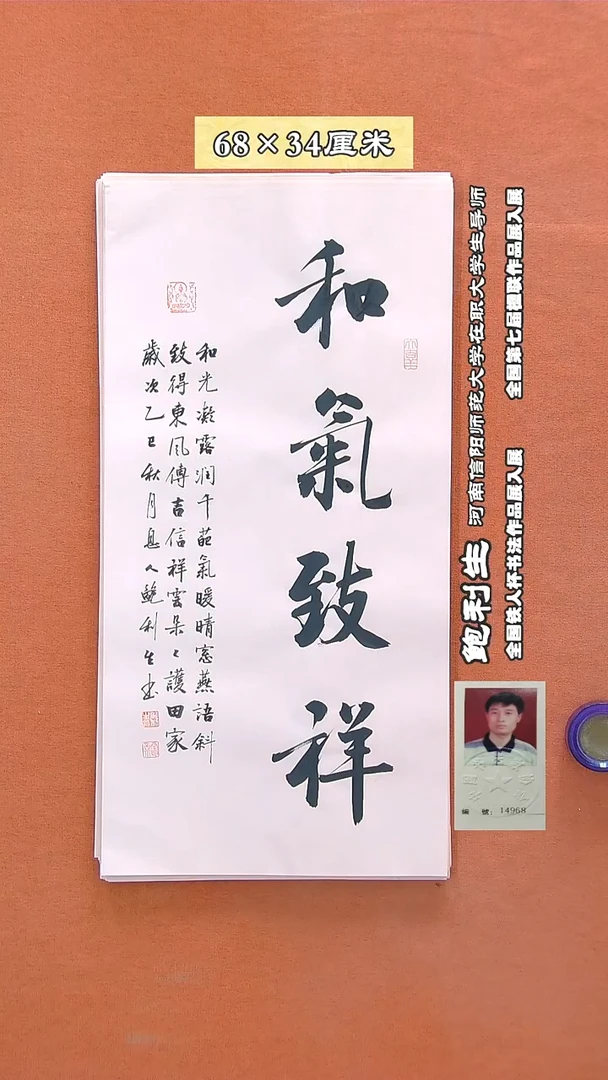 68×34厘米
和氣致祥
和光凝露润千葩氣暖晴窓燕語斜
致得東风傳吉信祥雲朵々護田家
歲次乙巳秋月息人鲍利生书
鲍利生
河南信阳师范大学在职大学生导师
全国铁人杯书法作品展入展
全国第七届楹联作品展入展
編號：14968